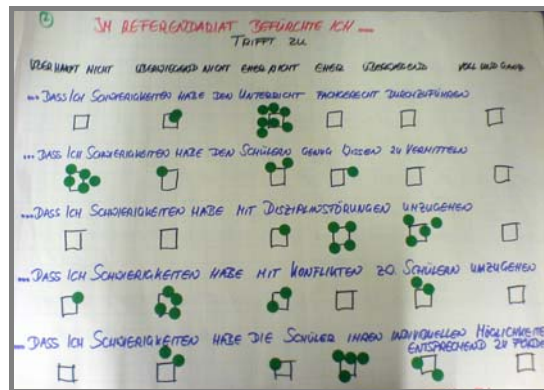 2
IM REFERENDARIAT BEFÜRCHTE ICH ...
TRIFFT ZU
ÜBERHAUPT NICHT ÜBERWIEGEND NICHT EHER NICHT EHER ÜBERWIEGEND VOLL UND GANZ
... DASS ICH SCHWIERIGKEITEN HABE DEN UNTERRICHT FACHGERECHT DURCHZUFÜHREN
... DASS ICH SCHWIERIGKEITEN HABE DEN SCHÜLERN GENUG WISSEN ZU VERMITTELN
... DASS ICH SCHWIERIGKEITEN HABE MIT DISZIPLINSTÖRUNGEN UMZUGEHEN
... DASS ICH SCHWIERIGKEITEN HABE MIT KONFLIKTEN ZW. SCHÜLERN UMZUGEHEN
... DASS ICH SCHWIERIGKEITEN HABE DIE SCHÜLER IHREN INDIVIDUELLEN MÖGLICHKEITE
ENTSPRECHEND ZU FÖRDE